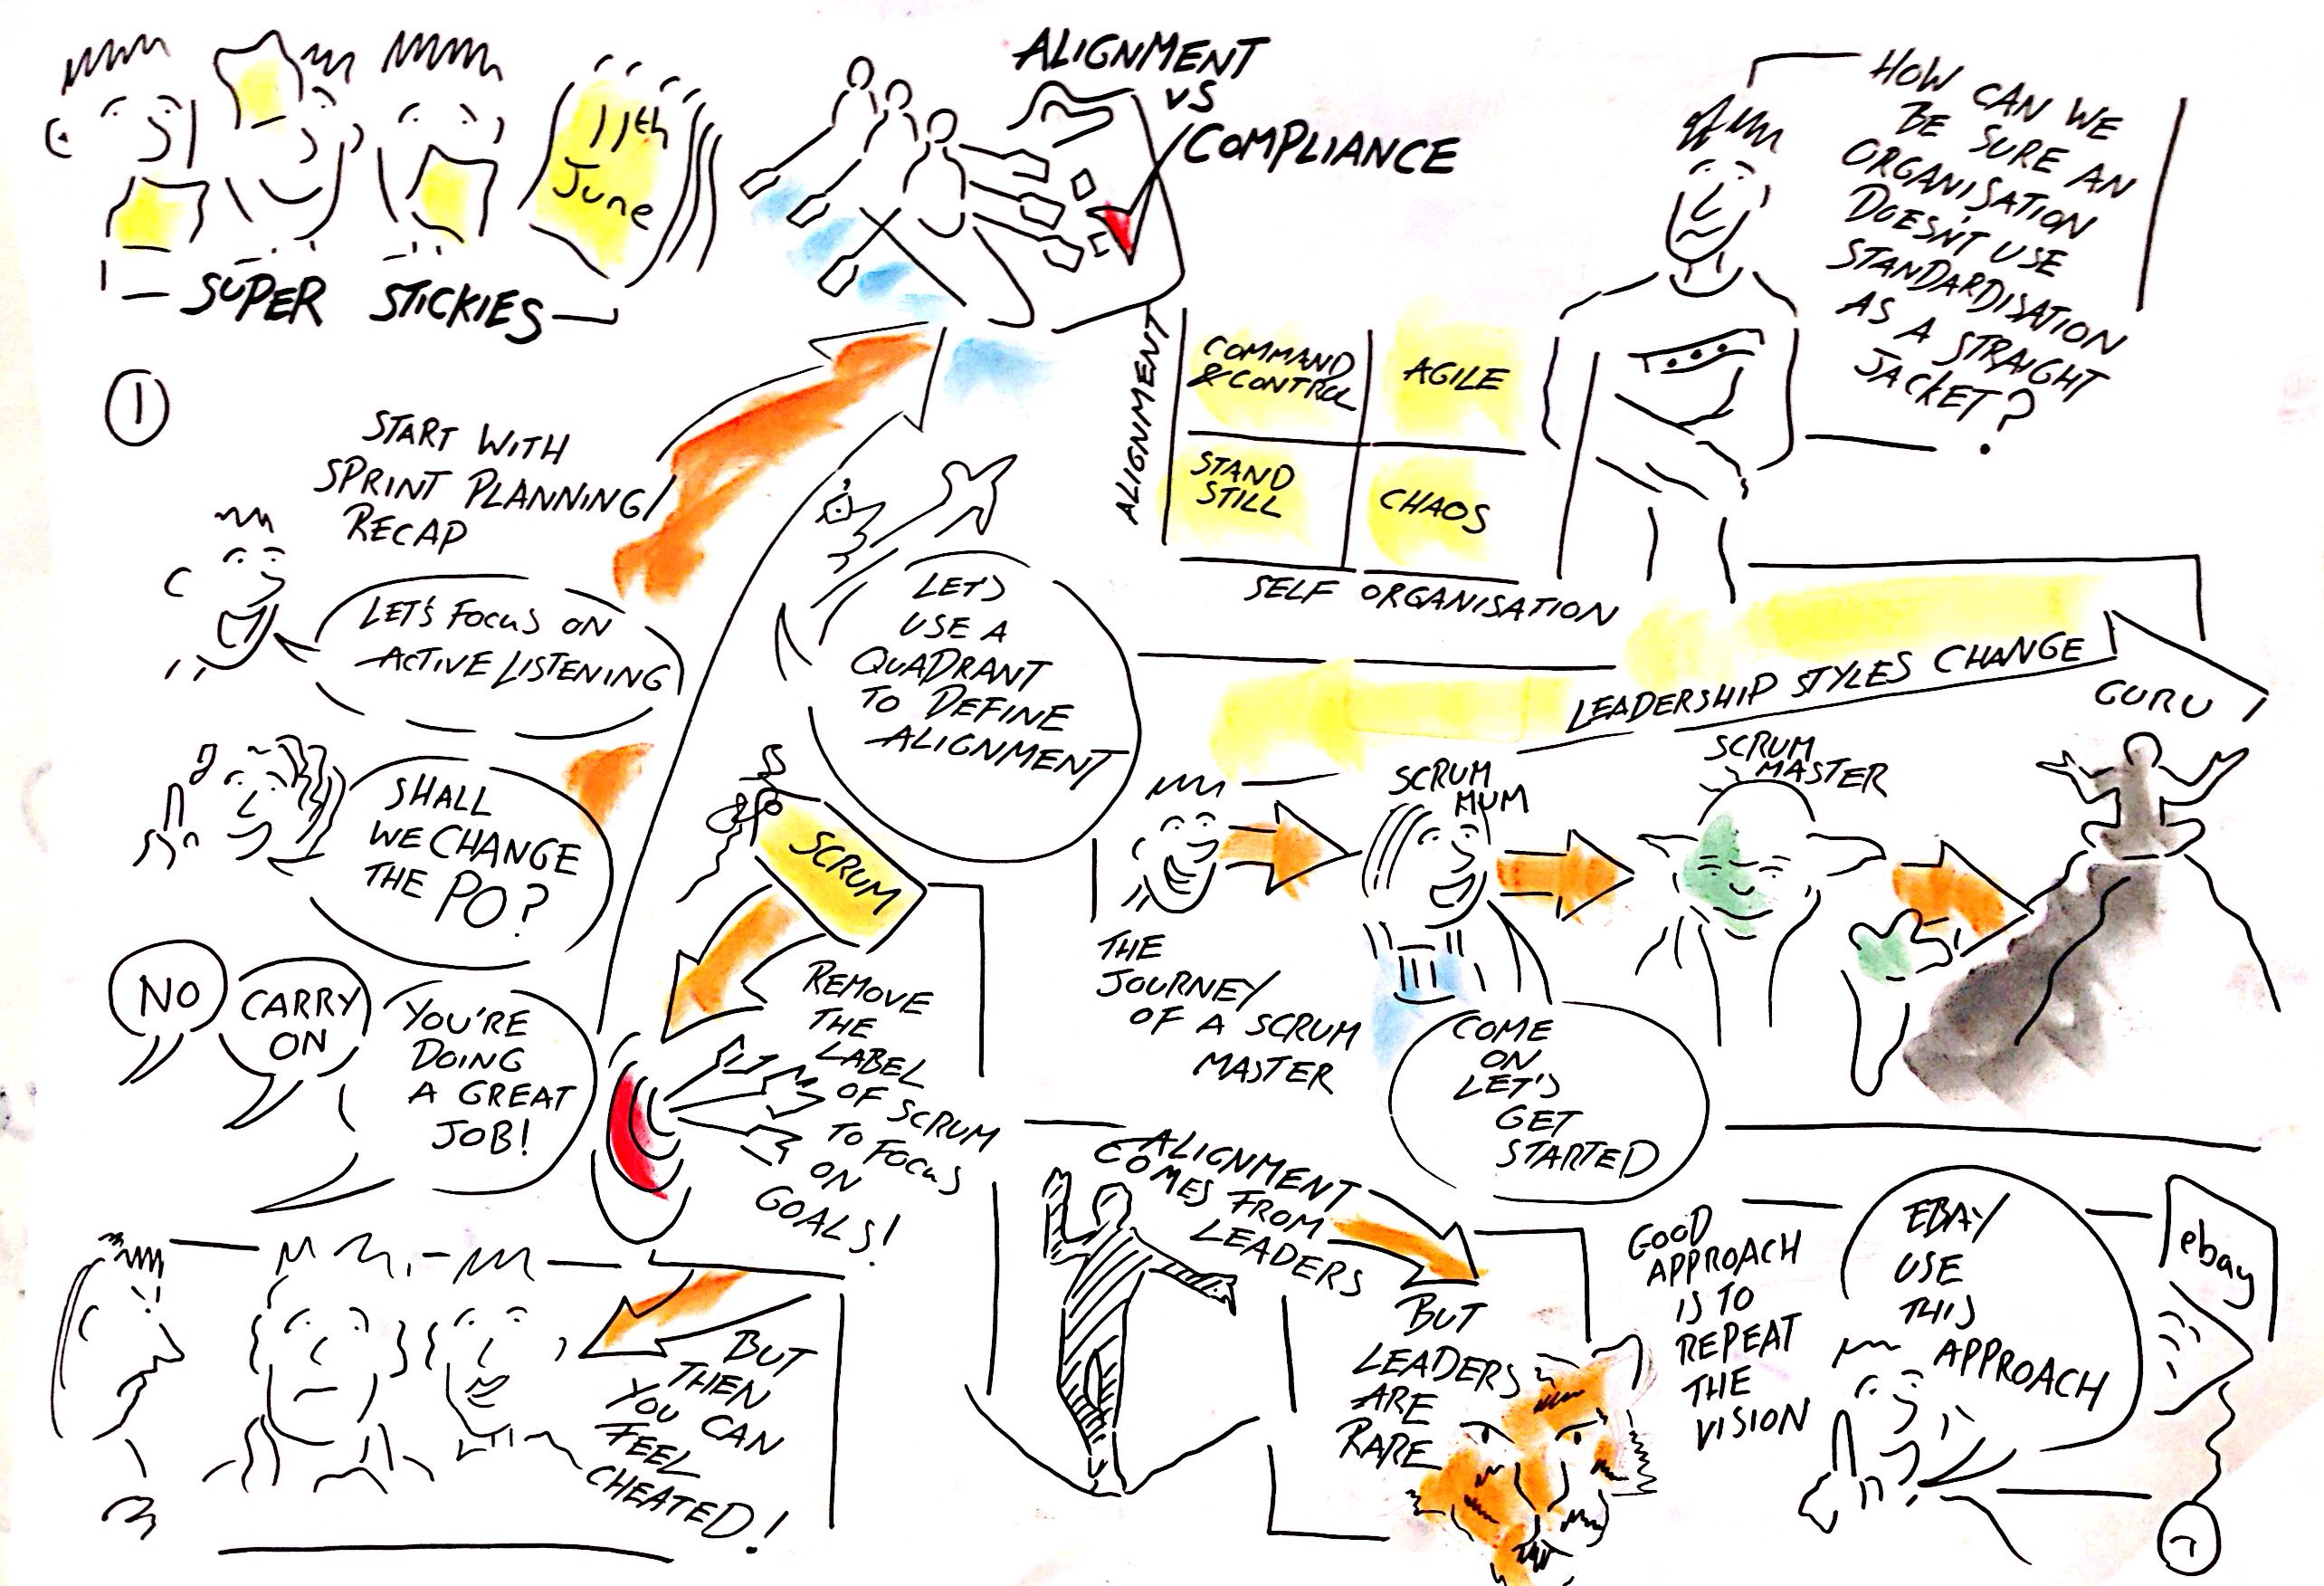 11th
June
SUPER STICKIES
ALIGNMENT
VS
COMPLIANCE
HOW CAN WE
BE SURE AN
ORGANISATION
DOESN'T USE
STANDARDISATION
AS A STRAIGHT
JACKET?
1
START WITH
SPRINT PLANNING
RECAP
LET'S FOCUS ON
ACTIVE LISTENING
SHALL
WE CHANGE
THE PO?
NO
CARRY
ON
YOU'RE
DOING
A GREAT
JOB!
LET'S
USE A
QUADRANT
TO DEFINE
ALIGNMENT
ALIGNMENT
COMMAND
& CONTROL
AGILE
STAND
STILL
CHAOS
SELF ORGANISATION
LEADERSHIP STYLES CHANGE
GURU
SCRUM
MASTER
SCRUM
MUM
THE
JOURNEY
OF A SCRUM
MASTER
COME
ON
LET'S
GET
STARTED
SCRUM
REMOVE
THE
LABEL
OF SCRUM
TO FOCUS
ON
GOALS!
BUT
THEN
YOU CAN
FEEL
CHEATED!
ALIGNMENT
COMES FROM
LEADERS
BUT
LEADERS
ARE
RARE
GOOD
APPROACH
IS TO
REPEAT
THE
VISION
EBAY
USE
THIS
APPROACH
ebay